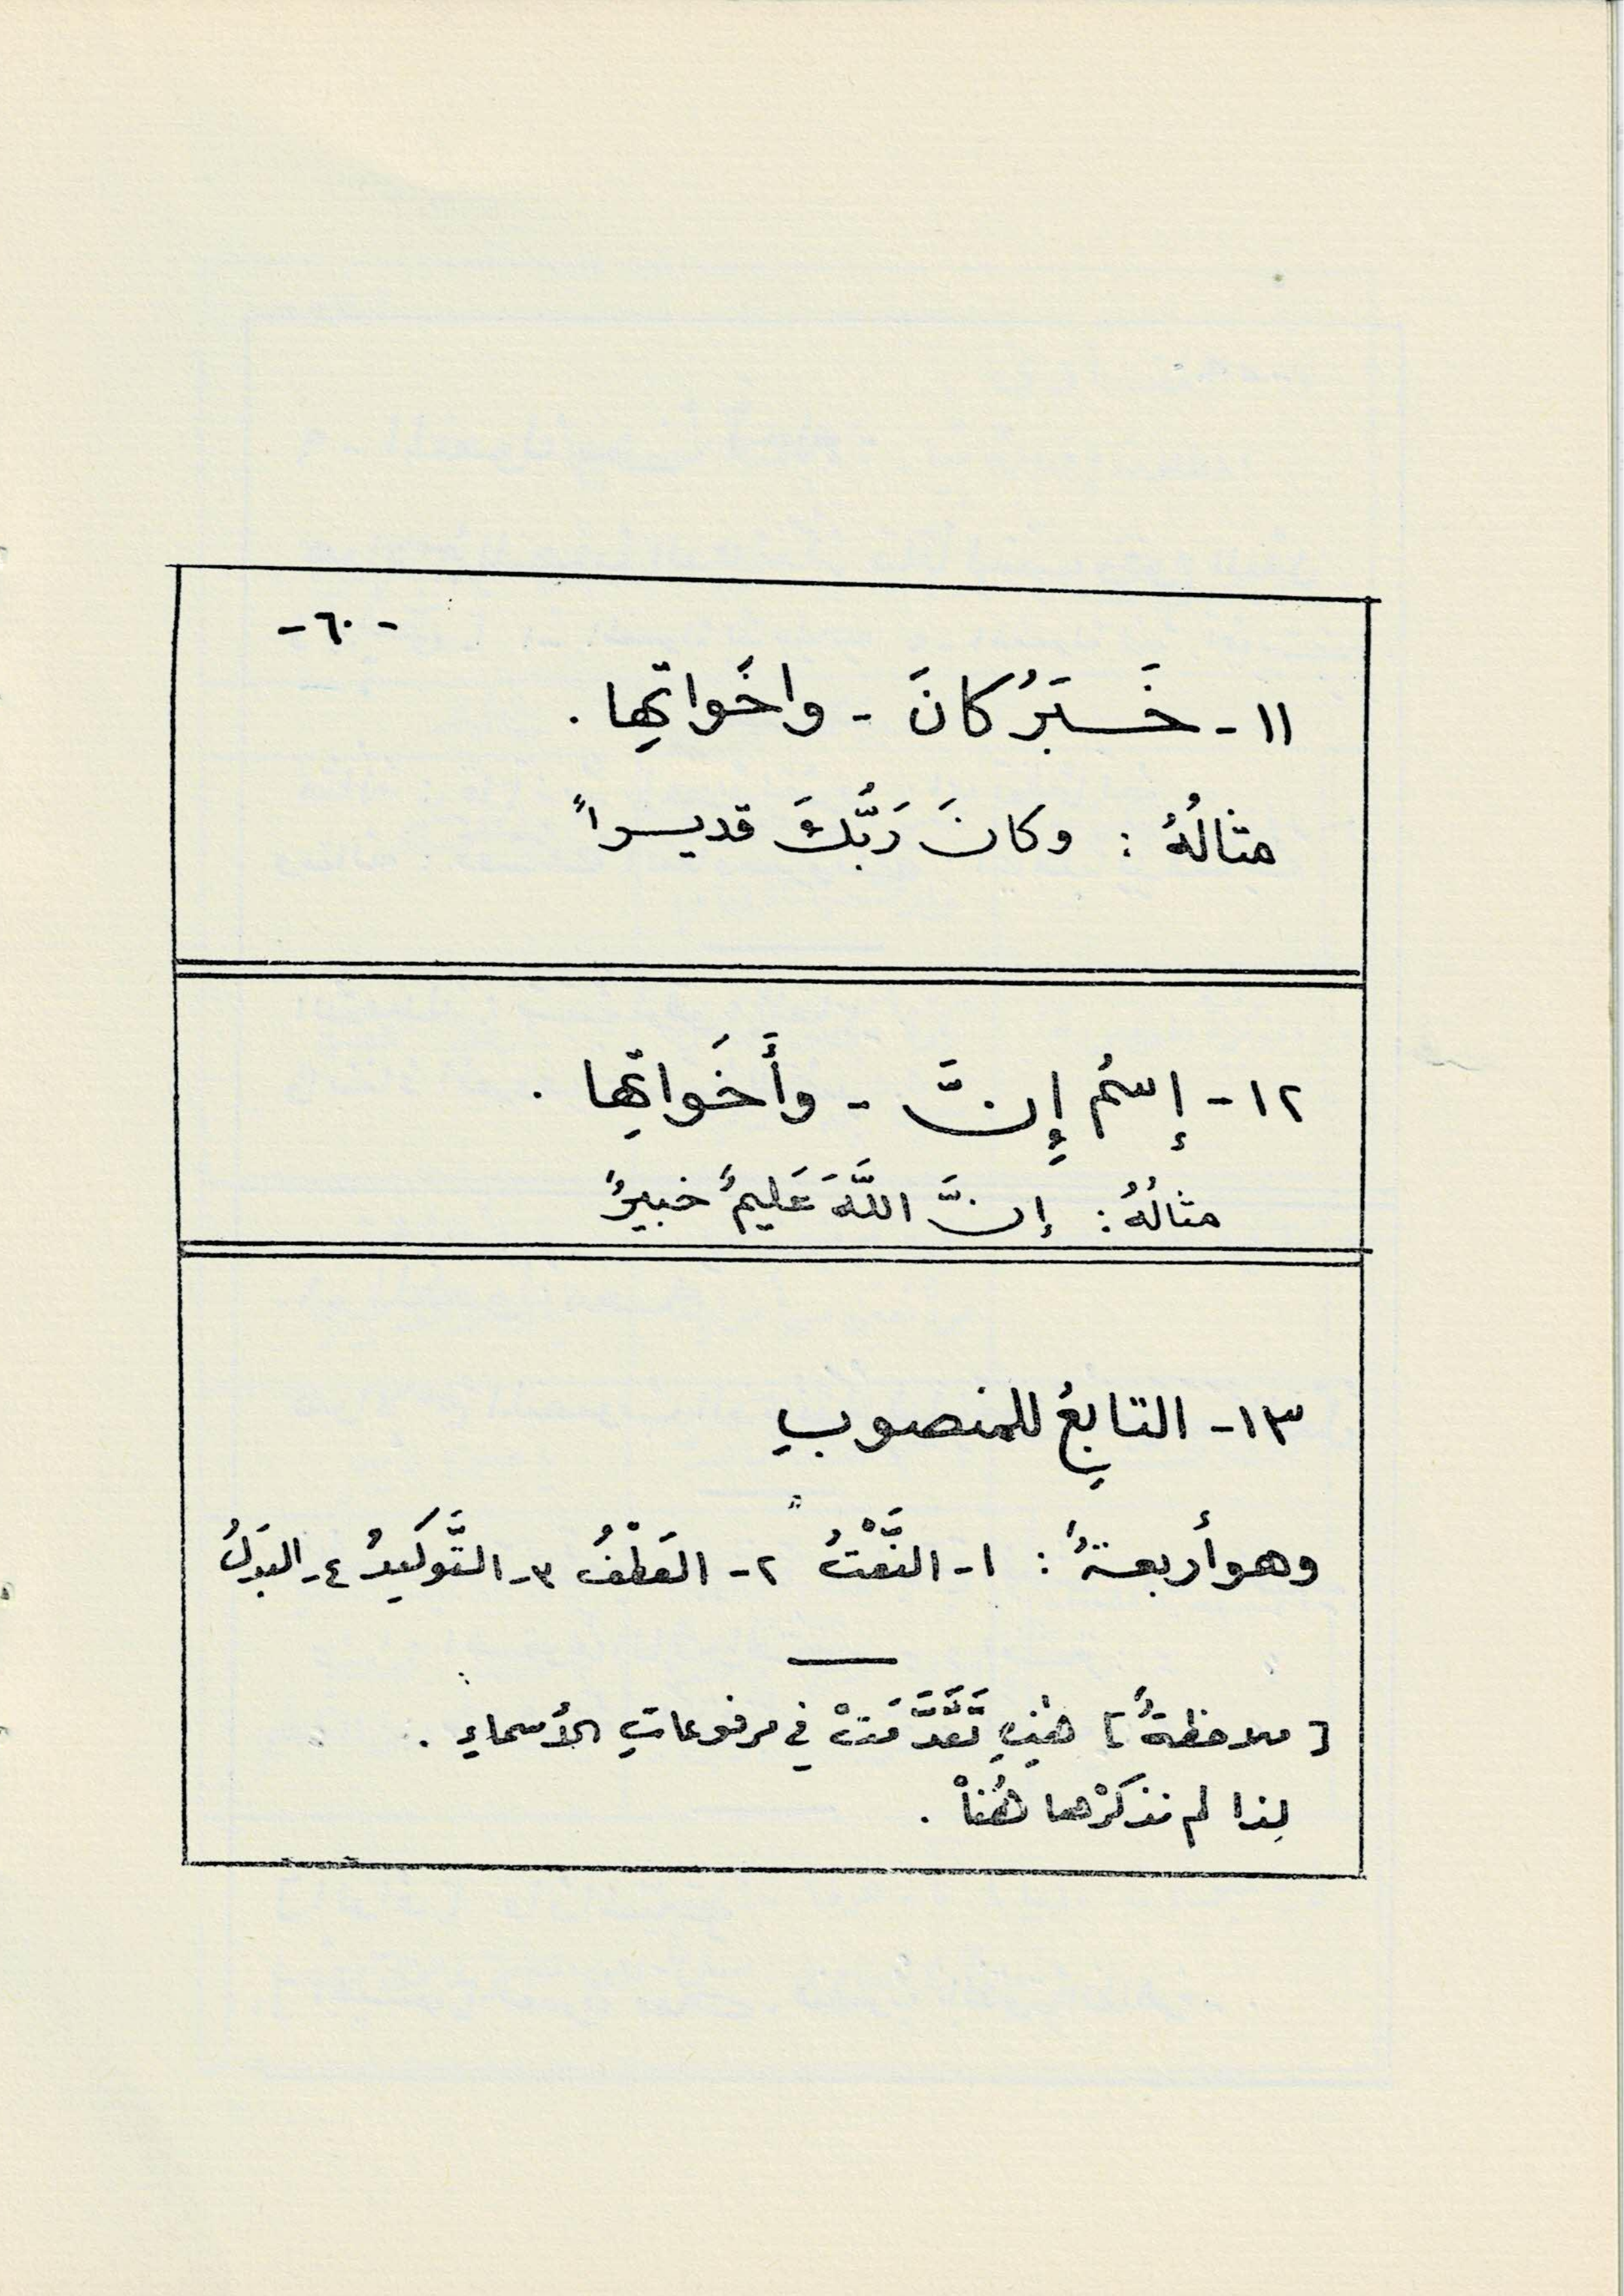 -٦٠-
١١- خَبَرُ كانَ - واخَواتِها .
مثالُهُ : وكانَ رَبُّكَ قديراً
١٢- إِسمُ إِنَّ - وأَخَواتِها .
مثالُهُ : إنَّ اللَّهَ عَليمٌ خبيرٌ
١٣- التابِعُ للمنصوبِ
وهو أربعةٌ : ١- النَّعْتُ ٢- العَطْفُ ٣- التَّوكيدُ ٤- البَدَلُ
[ملاحظةٌ] هٰذِهِ تَقَدَّمَتْ في مرفوعاتِ الأسماءِ .
لِذا لم نذكُرْها هُنا .